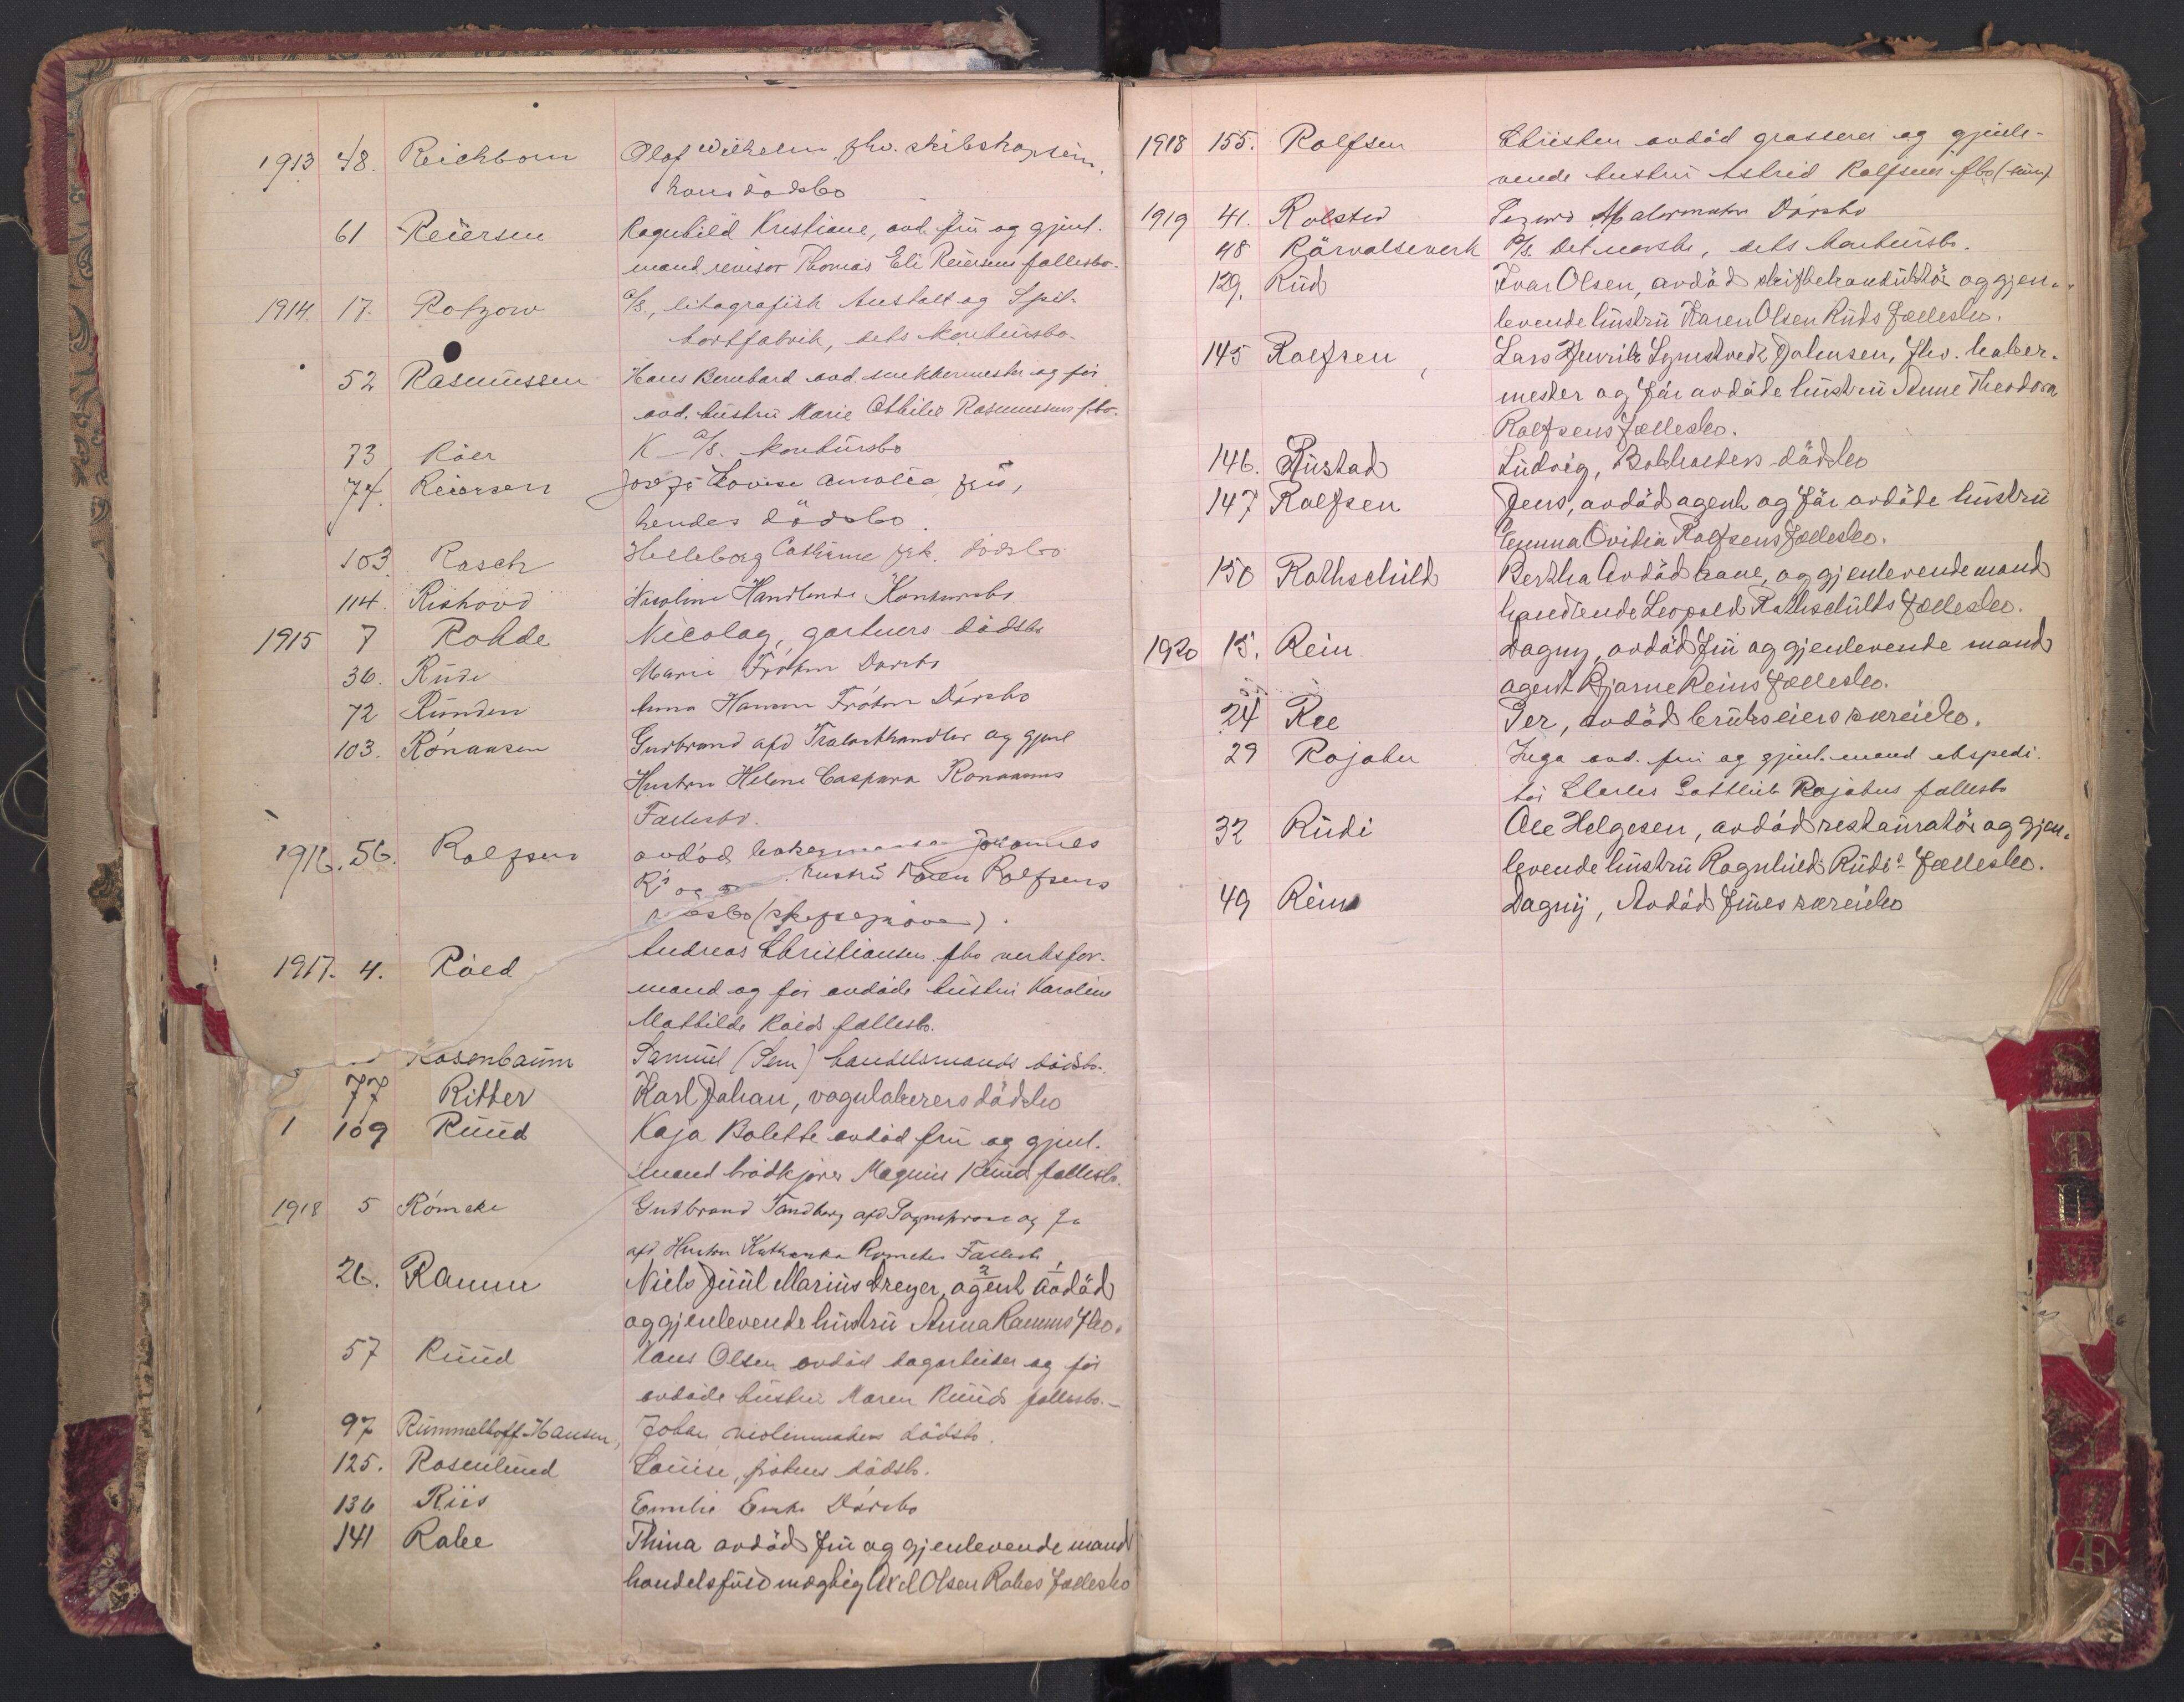 1913 48. Reichborn Olaf Wilhelm, fhv. skibskaptein,
hans dødsbo
61 Reiersen Ragnhild Kristiane, avd. frü og gjenl.
mand revisor Thomas Eli Reiersens fællesbo.
1914. 17. Rotzow A/S., litografisk Anstalt og Spil-
kortfabrik, dets konkürsbo.
52 Rasmüssen Hans Bernhard avd. snekkermester og før
avd. hüstrü Marie Othilie Rasmussens fbo.
73 Röer K A/S. konkürsbo
74. Reiersen Josefe Lovise Amalie, frü,
hendes dødsbo.
103. Rasch Helleborg Cathrine frk. dødsbo
114. Rishovd Nicoline Handlende Konkursbo
1915 7 Rohde Nicolay, gartners dødsbo
36. Rüde Marie Frøken Dørsbo
72 Ründen Anna Hansen Frøken Dørsbo
103. Rønaasen Gudbrand afd Trælasthandler og gjenl
Hustru Helene Caspara Rønaasens
Fællesbo.
1916. 56. Rolfsen avdød Johannes
og hustrü Karen Rolfsens
(skifteprøve).
1917. 4. Röed Andreas Christiansen fhv verksfor-
mand og før avdøde hüstrü Karoline
Mathilde Röeds fællesbo.
Rosenbaüm Samüel (Sem) handelsmands dødsbo.
77 Ritter Karl Johan, vognlakerers dødsbo
1 109 Rüüd Kaja Bolette avdød frü og gjenl.
mand brødkjører Magnüs Rüüds fællesbo.
1918 5 Römcke Gudbrand Tandberg afd Sogneprest og
afd Hustru Rømckes Fællesbo
26. Ramm Niels Jüül Mariüs Dreyer, agent avdød
og gjenlevende hüstrü Anna Ramms fbo.
57 Rüüd Hans Olsen avdød dagarbeider og før
avdøde hüstrü Maren Rüüds fællesbo.
97 Rümmelhoff-Hansen, Johan violinmakers dødsbo.
125. Rosenlünd Loüise, frøkens dødsbo.
136 Riis Emilie Enke Dørsbo
141 Rabe Thina avdød frü og gjenlevende mand
handelsfüldmægtig Axel Olsen Rabes fællesbo
1918 155. Rolfsen Christen avdød grosserer og gjenle-
vende hustrü Astrid Rolfsens fbo
1919 41. Rolsted Sigurd Malermester Dørsbo
48 Rörvalseverk A/S. Det norske, dets konkürsbo.
129. Rüd Ivar Olsen, avdød og gjen-
levende hüstrü Karen Olsen Rüds fællesbo.
145 Rolfsen, Lars Henrik Johnsen, fhv. baker-
mester og før avdøde hüstrü Anne Theodora
Rolfsens fællesbo.
146. Rüstad Lüdvig, Bokholders dødsbo
147 Rolfsen Jens, avdød agent og før avdøde hüstrü
Emma Ovidia Rolfsens fællesbo.
150 Rothschild Bertha Avdød kone, og gjenlevende mand
handlende Leopold Rothschilds fællesbo.
1920 15. Rein Dagny, avdød frü og gjenlevende mand
agent Bjarne Reins fællesbo.
24 Ree Per, avdød brükseiers særeiebo.
29 Rojahn Inga avd. frü og gjenl. mand ekspedi-
tør Charles Gottlieb Rojahns fællesbo
32 Rüdi Ole Helgesen, avdød restauratør og gjen-
levende hüstrü Ragnhild Rüdi's fællesbo.
49 Rein Dagny, Avdød früs særeiebo
S
T
U
V
Æ